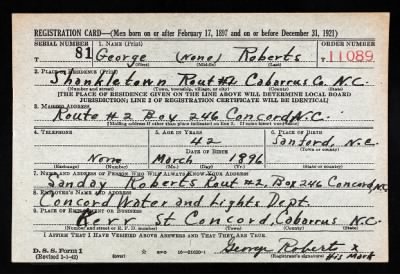 REGISTRATION CARD—(Men born on or after February 17, 1897 and on or before December 31, 1921)
SERIAL NUMBER 1. NAME (Print) ORDER NUMBER
T 81 George (None) Roberts T 11089
(First) (Middle) (Last)
2. PLACE OF RESIDENCE (Print)
Shankletown Rout #2 Cabarrus Co. N.C.
(Number and street) (Town, township, village, or city) (County) (State)
[THE PLACE OF RESIDENCE GIVEN ON THE LINE ABOVE WILL DETERMINE LOCAL BOARD
JURISDICTION; LINE 2 OF REGISTRATION CERTIFICATE WILL BE IDENTICAL]
3. MAILING ADDRESS
Route #2 Box 246 Concord, N.C.
[Mailing address if other than place indicated on line 2. If same insert word same]
4. TELEPHONE 5. AGE IN YEARS 6. PLACE OF BIRTH
42 Sanford, N.C.
DATE OF BIRTH (Town or county)
None March 1896
(Exchange) (Number) (Mo.) (Day) (Yr.) (State or country)
7. NAME AND ADDRESS OF PERSON WHO WILL ALWAYS KNOW YOUR ADDRESS
Sanday Roberts Rout #2, Box 246 Concord, N.C.
8. EMPLOYER'S NAME AND ADDRESS
Concord Water and Lights Dept.
9. PLACE OF EMPLOYMENT OR BUSINESS
Kerr St Concord, Cabarrus N.C.
(Number and street or R. F. D. number) (Town) (County) (State)
I AFFIRM THAT I HAVE VERIFIED ABOVE ANSWERS AND THAT THEY ARE TRUE.
George Roberts x
D. S. S. Form 1
(Revised 1-1-42) (over) (Registrant's signature) His Mark